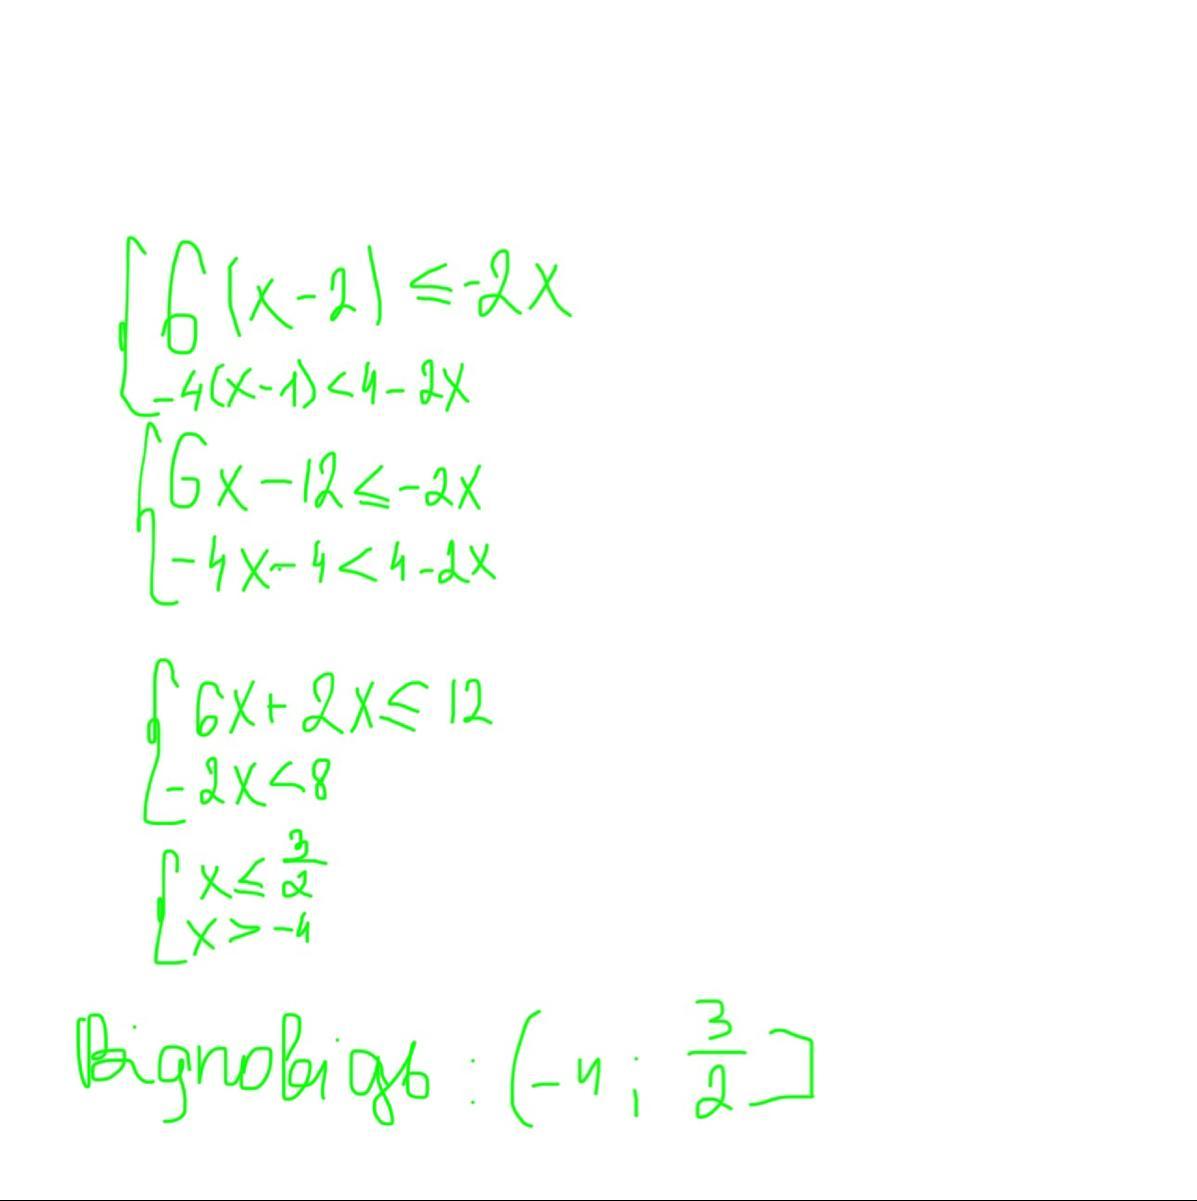 6(x-2) ≤ -2x
-4(x-1) < 4-2x
6x-12 ≤ -2x
-4x-4 < 4-2x
6x+2x ≤ 12
-2x < 8
x ≤ 3/2
x > -4
Відповідь: (-4; 3/2]